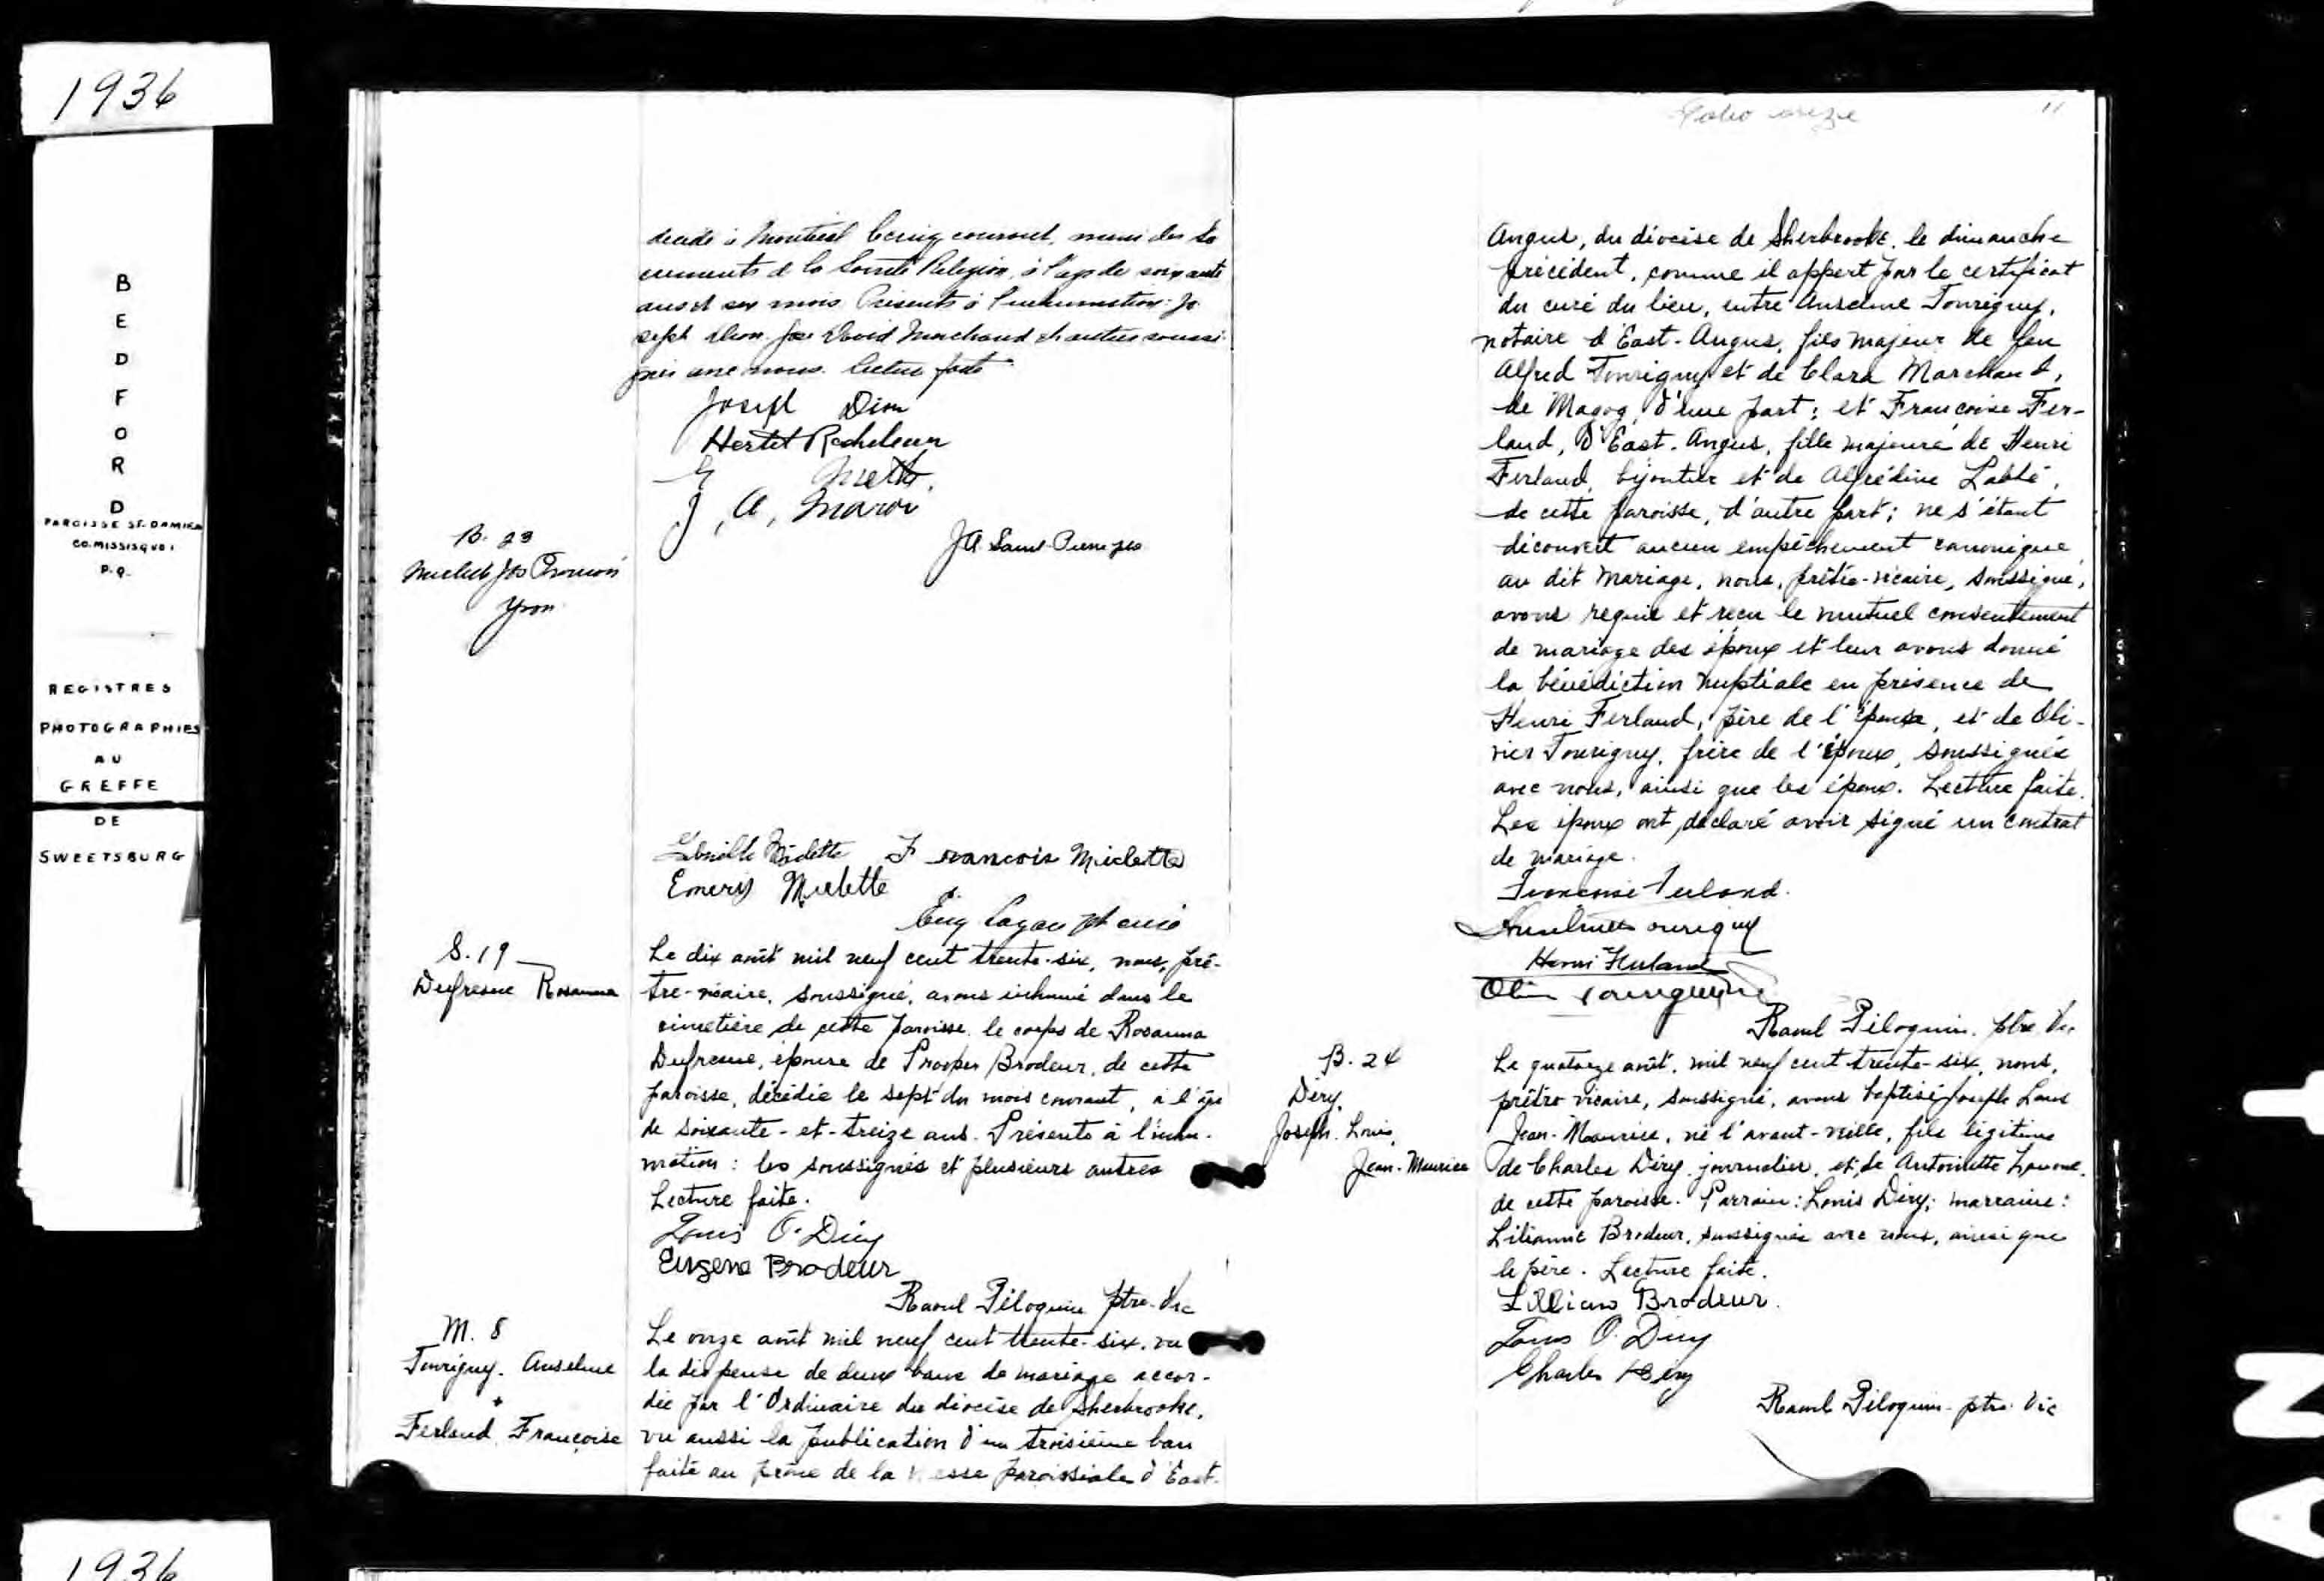 1936
BEDFORD
PAROISSE ST-DAMIEN
CO. MISSISQUOI
P.Q.
REGISTRES
PHOTOGRAPHIES
AU
GREFFE
DE
SWEETSBURG
1936
décédé à Montréal le cinq courant, muni des Sa
crements de la Sainte Religion, à l'age de soixante
ans et six mois Présents à l'inhumation: Jo
seph Dion Jos David Marchand et autres soussi
gnés avec nous. Lecture faite
Joseph Dion
Hertel
J. A.
J A Saint-Pierre
B. 23
Jos
Yvon
François Miclette
Emery Miclette
S. 19
Dufresne Rosanna
Le dix août mil neuf cent trente-six, nous, prê-
tre-vicaire, soussigné, avons inhumé dans le
cimetière de cette paroisse le corps de Rosanna
Dufresne, épouse de Prosper Brodeur, de cette
paroisse, décédée le sept du mois courant, à l'âge
de soixante-et-treize ans. Présents à l'inhu-
mation: les soussignés et plusieurs autres
Lecture faite.
Louis O. Déry
Eugene Brodeur
Raoul Péloquin ptre. Vic
M. 8
Tourigny. Anselme
+
Ferland, Françoise
Le onze août mil neuf cent trente-six, vu
la dispense de deux bans de mariage accor-
dée par l'Ordinaire du diocèse de Sherbrooke,
vu aussi la publication d'un troisième ban
faite au prône de la messe paroissiale d'East-
Folio onze
11
Angus, du diocèse de Sherbrooke, le dimanche
précédent, comme il appert par le certificat
du curé du lieu, entre Anselme Tourigny,
notaire d'East-Angus, fils majeur de feu
Alfred Tourigny et de Clara Marchand,
de Magog, d'une part; et Françoise Fer-
land, d'East-Angus, fille majeure de Henri
Ferland, bijoutier et de Alfrédine Labbé,
de cette paroisse, d'autre part; ne s'étant
découvert aucun empêchement canonique
au dit mariage, nous, prêtre-vicaire, soussigné,
avons requis et reçu le mutuel consentement
de mariage des époux et leur avons donné
la bénédiction nuptiale en présence de
Henri Ferland, père de l'épouse, et de Oli-
vier Tourigny, frère de l'époux, soussignés
avec nous, ainsi que les époux. Lecture faite.
Les époux ont déclaré avoir signé un contrat
de mariage.
Françoise Ferland.
Anselme Tourigny
Henri Ferland
Raoul Péloquin. ptre. Vic
B. 24
Déry,
Joseph. Louis,
Jean-Maurice
Le quatorze août, mil neuf cent trente-six, nous,
prêtre vicaire, soussigné, avons baptisé Joseph Louis
Jean-Maurice, né l'avant-veille, fils légitime
de Charles Déry, journalier, et de Antoinette
de cette paroisse. Parrain: Louis Déry; marraine:
Lilianne Brodeur, soussignés avec nous, ainsi que
le père. Lecture faite.
Lillian Brodeur.
Louis O. Déry
Charles Déry
Raoul Péloquin-ptre. Vic